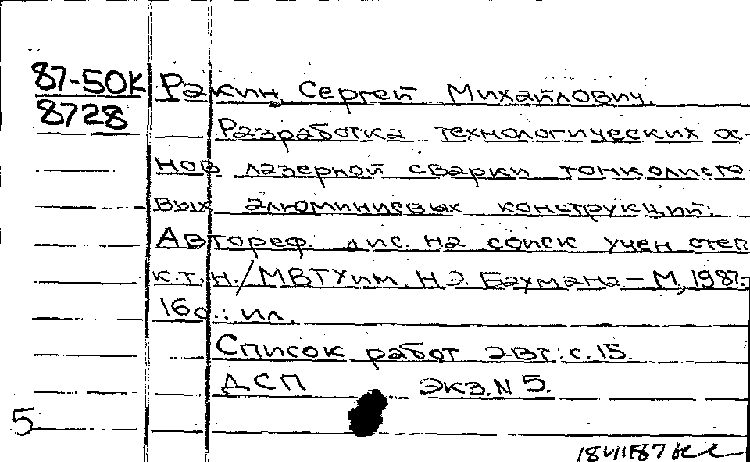 87-50К Ракин, Сергей Михайлович.
8728
Разработка технологических ос-
нов лазерной сварки тонколисто
вых алюминиевых конструкций:
Автореф. дис. на соиск учен степ
к.т.н./МВТУ им. Н.Э. Баумана – М, 1987.-
16с.: ил.
Список работ авт.: с. 15.
ДСП Экз. N 5.
5